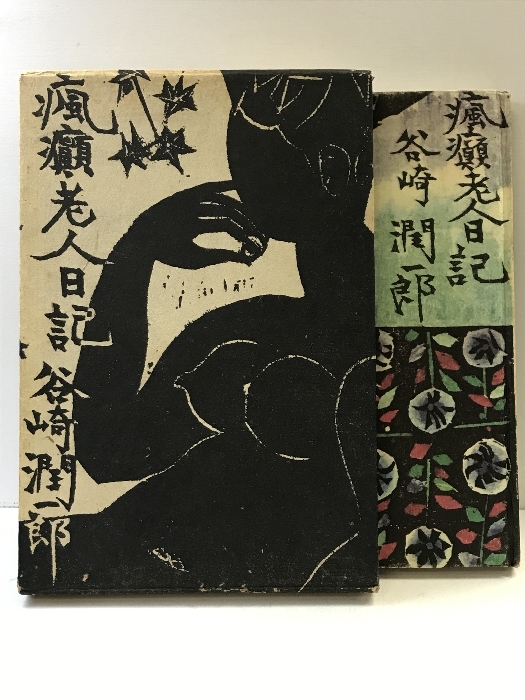 瘋癲老人日記 谷崎潤一郎
瘋癲老人日記
谷崎潤一郎